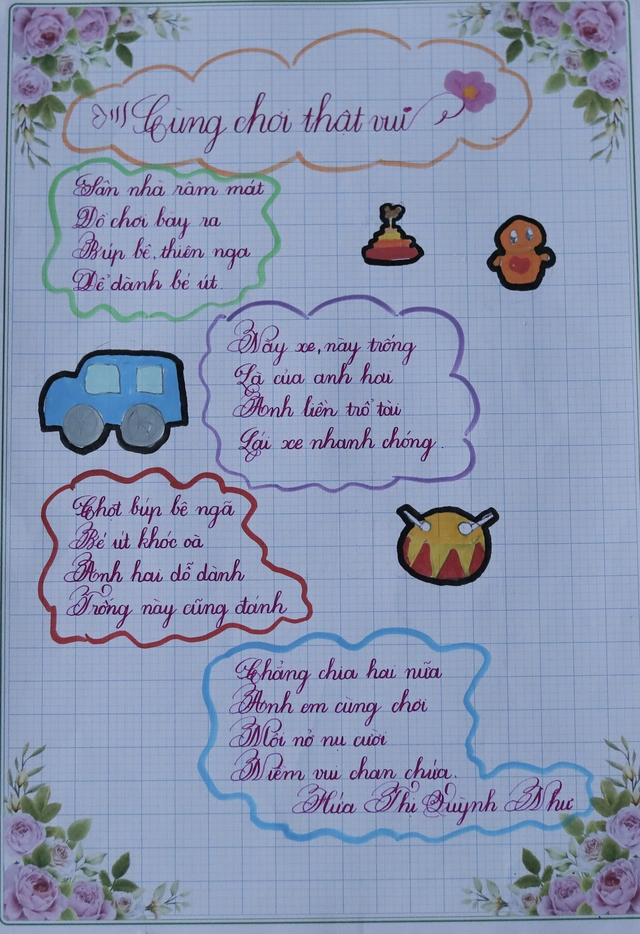 Cùng chơi thật vui
Sân nhà râm mát
Đồ chơi bày ra
Búp bê, thiên nga
Để dành bé út.
Này xe, này trống
Là của anh hai
Anh liền trổ tài
Lái xe nhanh chóng.
Chợt búp bê ngã
Bé út khóc oà
Anh hai dỗ dành
Trống này cũng đánh
Chẳng chia hai nữa
Anh em cùng chơi
Môi nở nụ cười
Niềm vui chan chứa.
Hứa Thị Quỳnh Như